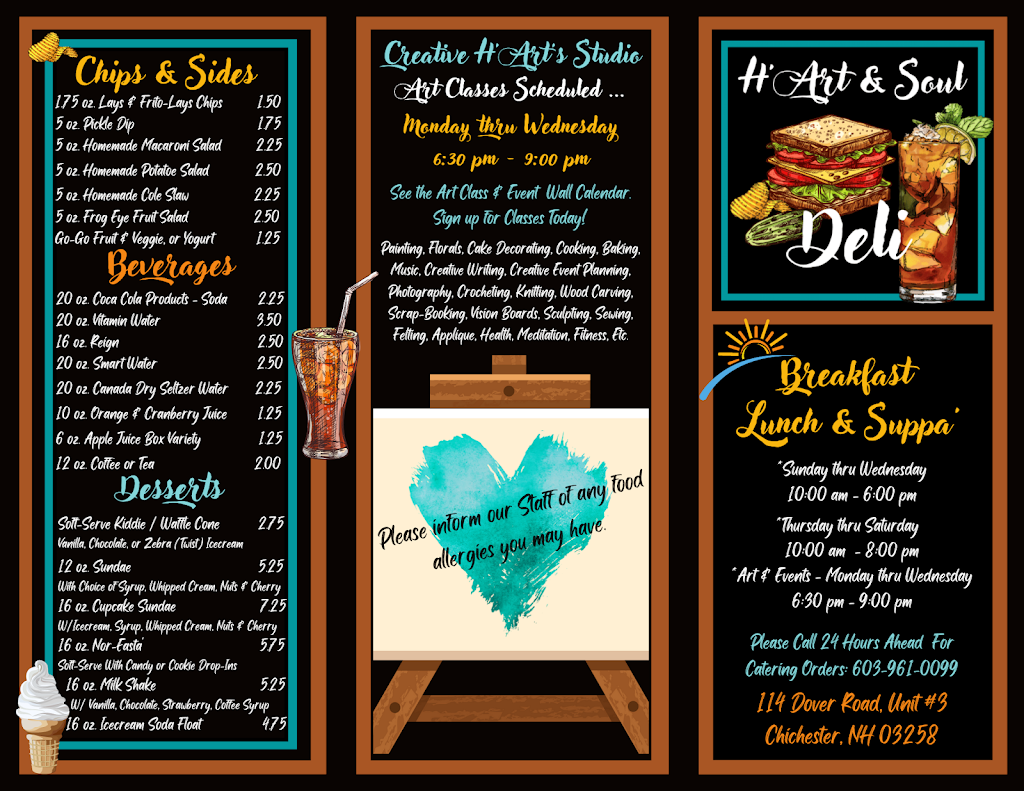 Chips & Sides
1.75 oz. Lays & Frito-Lays Chips 1.50
5 oz. Pickle Dip 1.75
5 oz. Homemade Macaroni Salad 2.25
5 oz. Homemade Potatoe Salad 2.50
5 oz. Homemade Cole Slaw 2.25
5 oz. Frog Eye Fruit Salad 2.50
Go-Go Fruit & Veggie, or Yogurt 1.25
Beverages
20 oz. Coca Cola Products - Soda 2.25
20 oz. Vitamin Water 3.50
16 oz. Reign 2.50
20 oz. Smart Water 2.50
20 oz. Canada Dry Seltzer Water 2.25
10 oz. Orange & Cranberry Juice 1.25
6 oz. Apple Juice Box Variety 1.25
12 oz. Coffee or Tea 2.00
Desserts
Soft-Serve Kiddie / Waffle Cone 2.75
Vanilla, Chocolate, or Zebra (Twist) Icecream
12 oz. Sundae 5.25
With Choice of Syrup, Whipped Cream, Nuts & Cherry
16 oz. Cupcake Sundae 7.25
W/Icecream, Syrup, Whipped Cream, Nuts & Cherry
16 oz. Nor-Easta' 5.75
Soft-Serve With Candy or Cookie Drop-Ins
16 oz. Milk Shake 5.25
W/ Vanilla, Chocolate, Strawberry, Coffee Syrup
16 oz. Icecream Soda Float 4.75
Creative H'Art's Studio
Art Classes Scheduled ...
Monday thru Wednesday
6:30 pm - 9:00 pm
See the Art Class & Event Wall Calendar.
Sign up for Classes Today!
Painting, Florals, Cake Decorating, Cooking, Baking,
Music, Creative Writing, Creative Event Planning,
Photography, Crocheting, Knitting, Wood Carving,
Scrap-Booking, Vision Boards, Sculpting, Sewing,
Felting, Applique, Health, Meditation, Fitness, Etc.
Please inform our Staff of any food
allergies you may have.
H'Art & Soul
Deli
Breakfast
Lunch & Suppa'
*Sunday thru Wednesday
10:00 am - 6:00 pm
*Thursday thru Saturday
10:00 am - 8:00 pm
*Art & Events - Monday thru Wednesday
6:30 pm - 9:00 pm
Please Call 24 Hours Ahead For
Catering Orders: 603-961-0099
114 Dover Road, Unit #3
Chichester, NH 03258